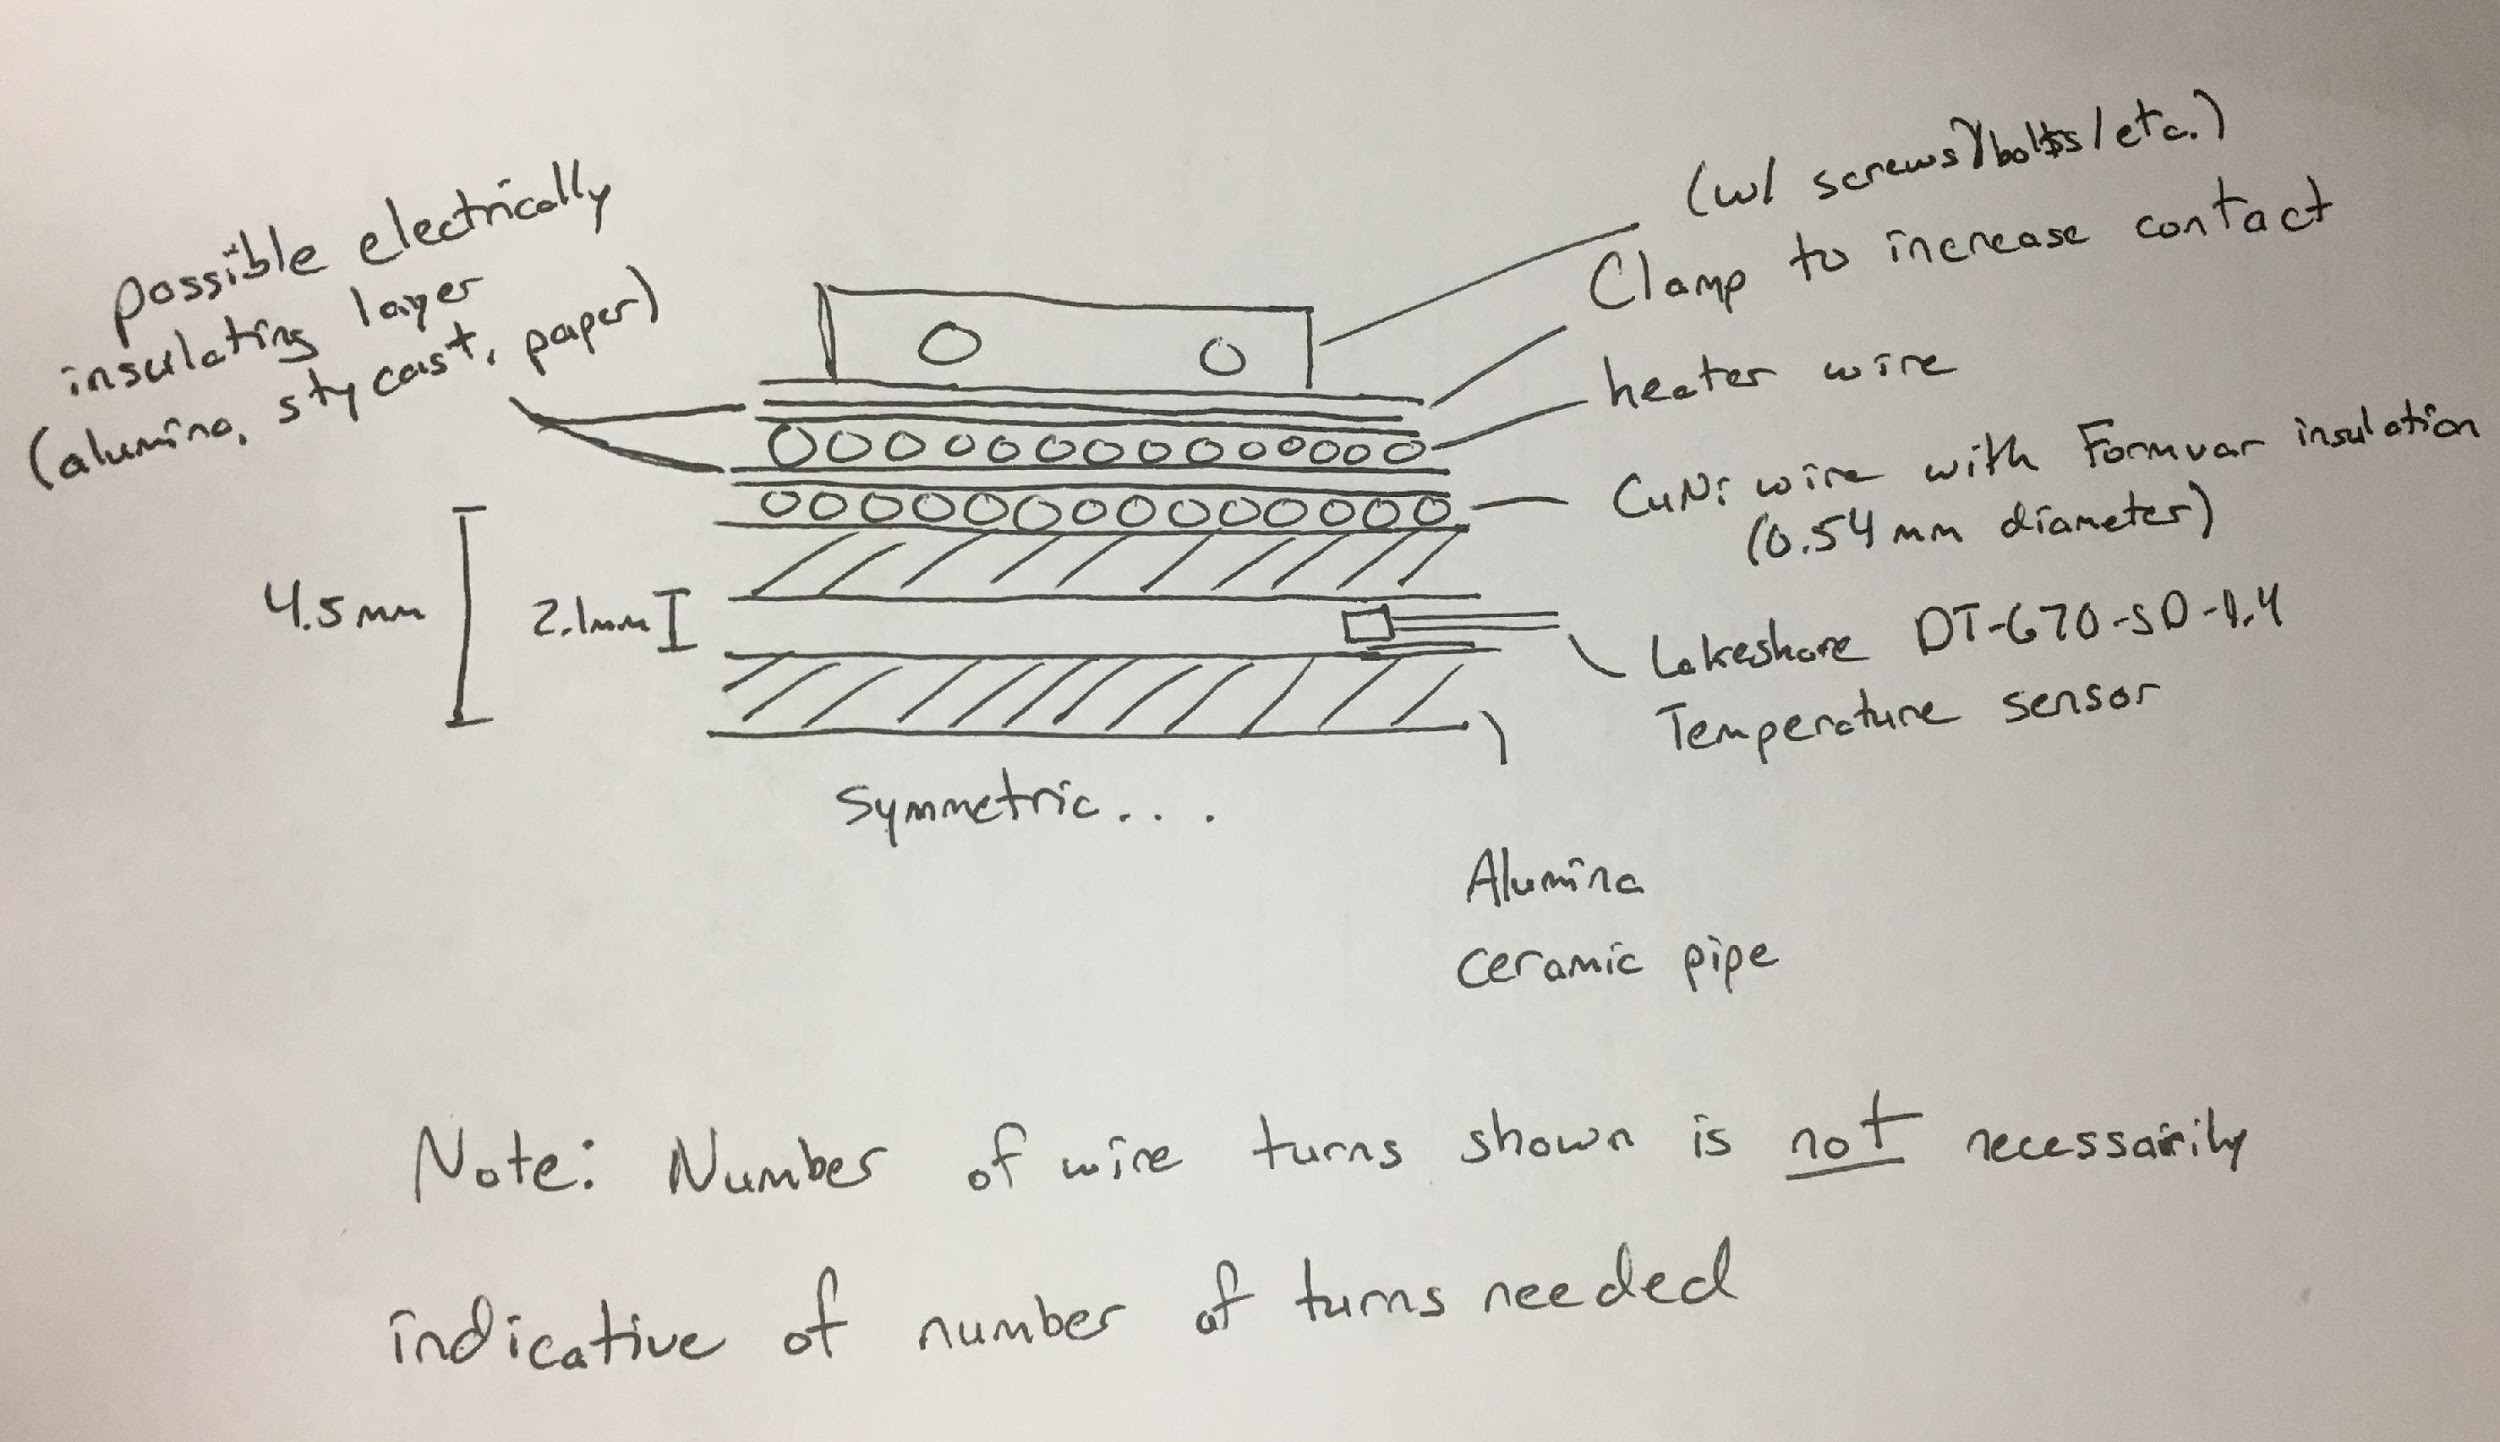 possible electrically
insulating layer
(alumina, stycast, paper)
(w/ screws/bolts/etc.)
Clamp to increase contact
heater wire
CuNi wire with Formvar insulation
(0.54 mm diameter)
4.5mm
2.1mm
Lakeshore DT-670-SD-1.4
Temperature sensor
Symmetric...
Alumina
ceramic pipe
Note: Number of wire turns shown is not necessarily
indicative of number of turns needed